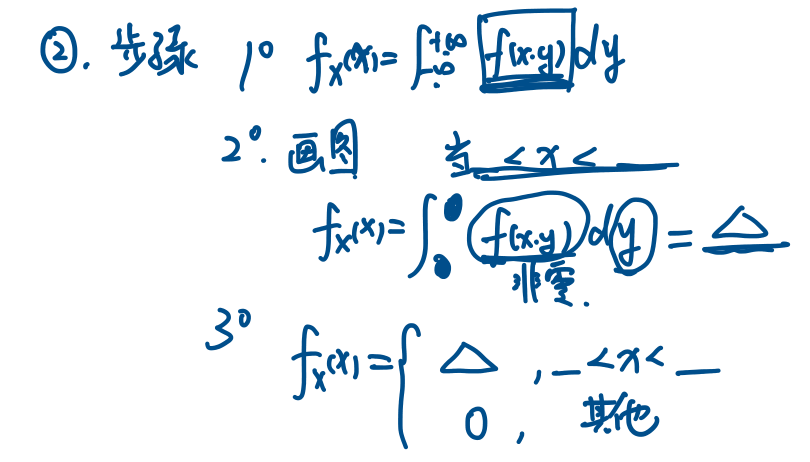 ②. 步骤 1° fₓ(x)=∫₋∞⁺∞ f(x.y)dy
2°. 画图 当__<x<__
fₓ(x)=∫ f(x.y)dy=△
非零.
3° fₓ(x)={ △ , __<x<__
0 , 其他